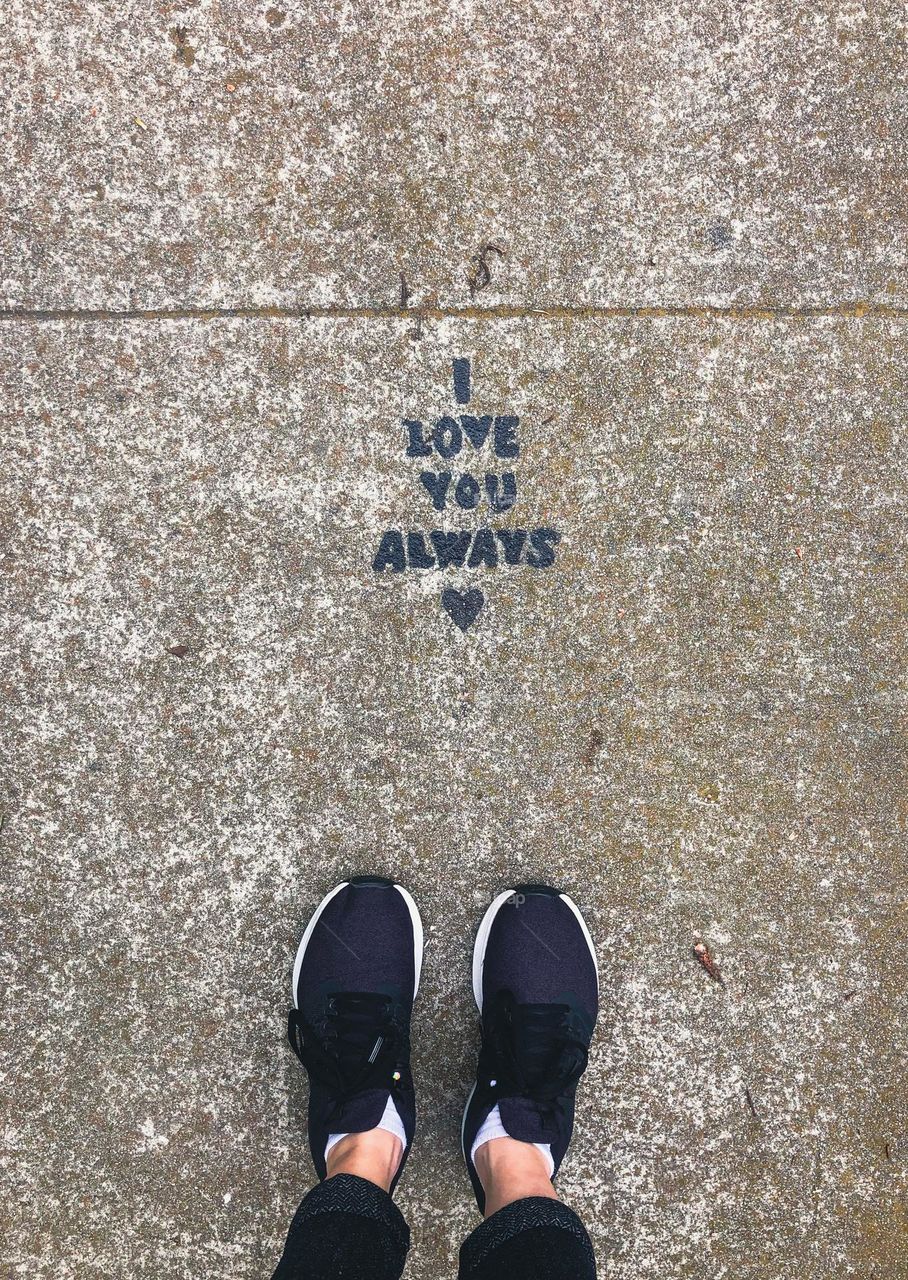 I
LOVE
YOU
ALWAYS
♥